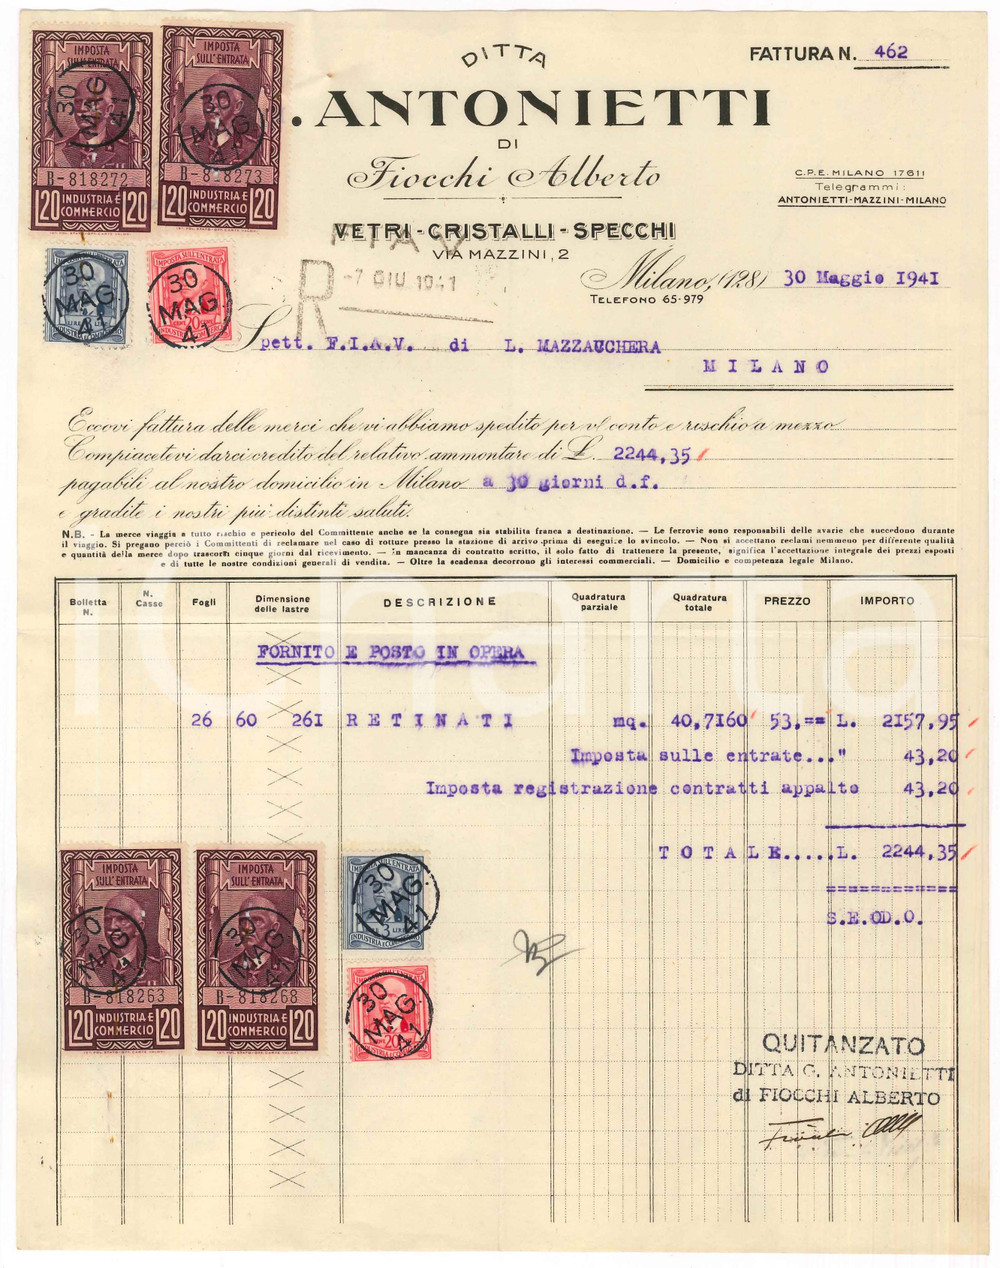 DITTA
FATTURA N. 462
. ANTONIETTI
DI
Fiocchi Alberto
C.P.E. MILANO 17611
Telegrammi:
ANTONIETTI-MAZZINI-MILANO
VETRI - CRISTALLI - SPECCHI
VIA MAZZINI, 2
Milano, (128) 30 Maggio 1941
TELEFONO 65-979
R
-7 GIU 1941
Spett. F.I.A.V. di L. MAZZAUCHERA
MILANO
IMPOSTA SULL'ENTRATA
30 MAG 41
B-818272
120 INDUSTRIA E COMMERCIO 120
IMPOSTA SULL'ENTRATA
30 MAG 41
B-818273
120 INDUSTRIA E COMMERCIO 120
30 MAG. 41
30 MAG. 41
Eccovi fattura delle merci che vi abbiamo spedito per vs/ conto e rischio a mezzo
Compiacetevi darci credito del relativo ammontare di £. 2244,35
pagabili al nostro domicilio in Milano a 30 giorni d.f.
e gradite i nostri più distinti saluti.
N.B. - La merce viaggia a tutto rischio e pericolo del Committente anche se la consegna sia stabilita franca a destinazione. — Le ferrovie sono responsabili delle avarie che succedono durante
il viaggio. Si pregano perciò i Committenti di reclamare nel caso di rotture presso la stazione di arrivo prima di eseguire lo svincolo. — Non si accettano reclami nemmeno per differente qualità
e quantità della merce dopo trascorsi cinque giorni dal ricevimento. — In mancanza di contratto scritto, il solo fatto di trattenere la presente, significa l'accettazione integrale dei prezzi esposti
e di tutte le nostre condizioni generali di vendita. — Oltre la scadenza decorrono gli interessi commerciali. — Domicilio e competenza legale Milano.
Bolletta N.
N. Casse
Fogli
Dimensione delle lastre
DESCRIZIONE
Quadratura parziale
Quadratura totale
PREZZO
IMPORTO
FORNITO E POSTO IN OPERA
26 60 261 RETINATI mq. 40,7160 53.== L. 2157,95
Imposta sulle entrate..." 43,20
Imposta registrazione contratti appalto 43,20
TOTALE.....L. 2244,35
============
S.E.OD.O.
IMPOSTA SULL'ENTRATA
30 MAG 41
B-818263
120 INDUSTRIA E COMMERCIO 120
IMPOSTA SULL'ENTRATA
30 MAG. 41
B-818268
120 INDUSTRIA E COMMERCIO 120
30 MAG. 41
3 LIRE
INDUSTRIA E COMMERCIO
30 MAG. 41
20
QUITANZATO
DITTA G. ANTONIETTI
di FIOCCHI ALBERTO